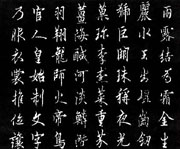 雨露結為霜金生
麗水玉出崑岡劍
號巨闕珠稱夜光
菓珍李柰菜重芥
薑海鹹河淡鱗潛
羽翔龍師火帝鳥
官人皇始制文字
乃服衣裳推位讓